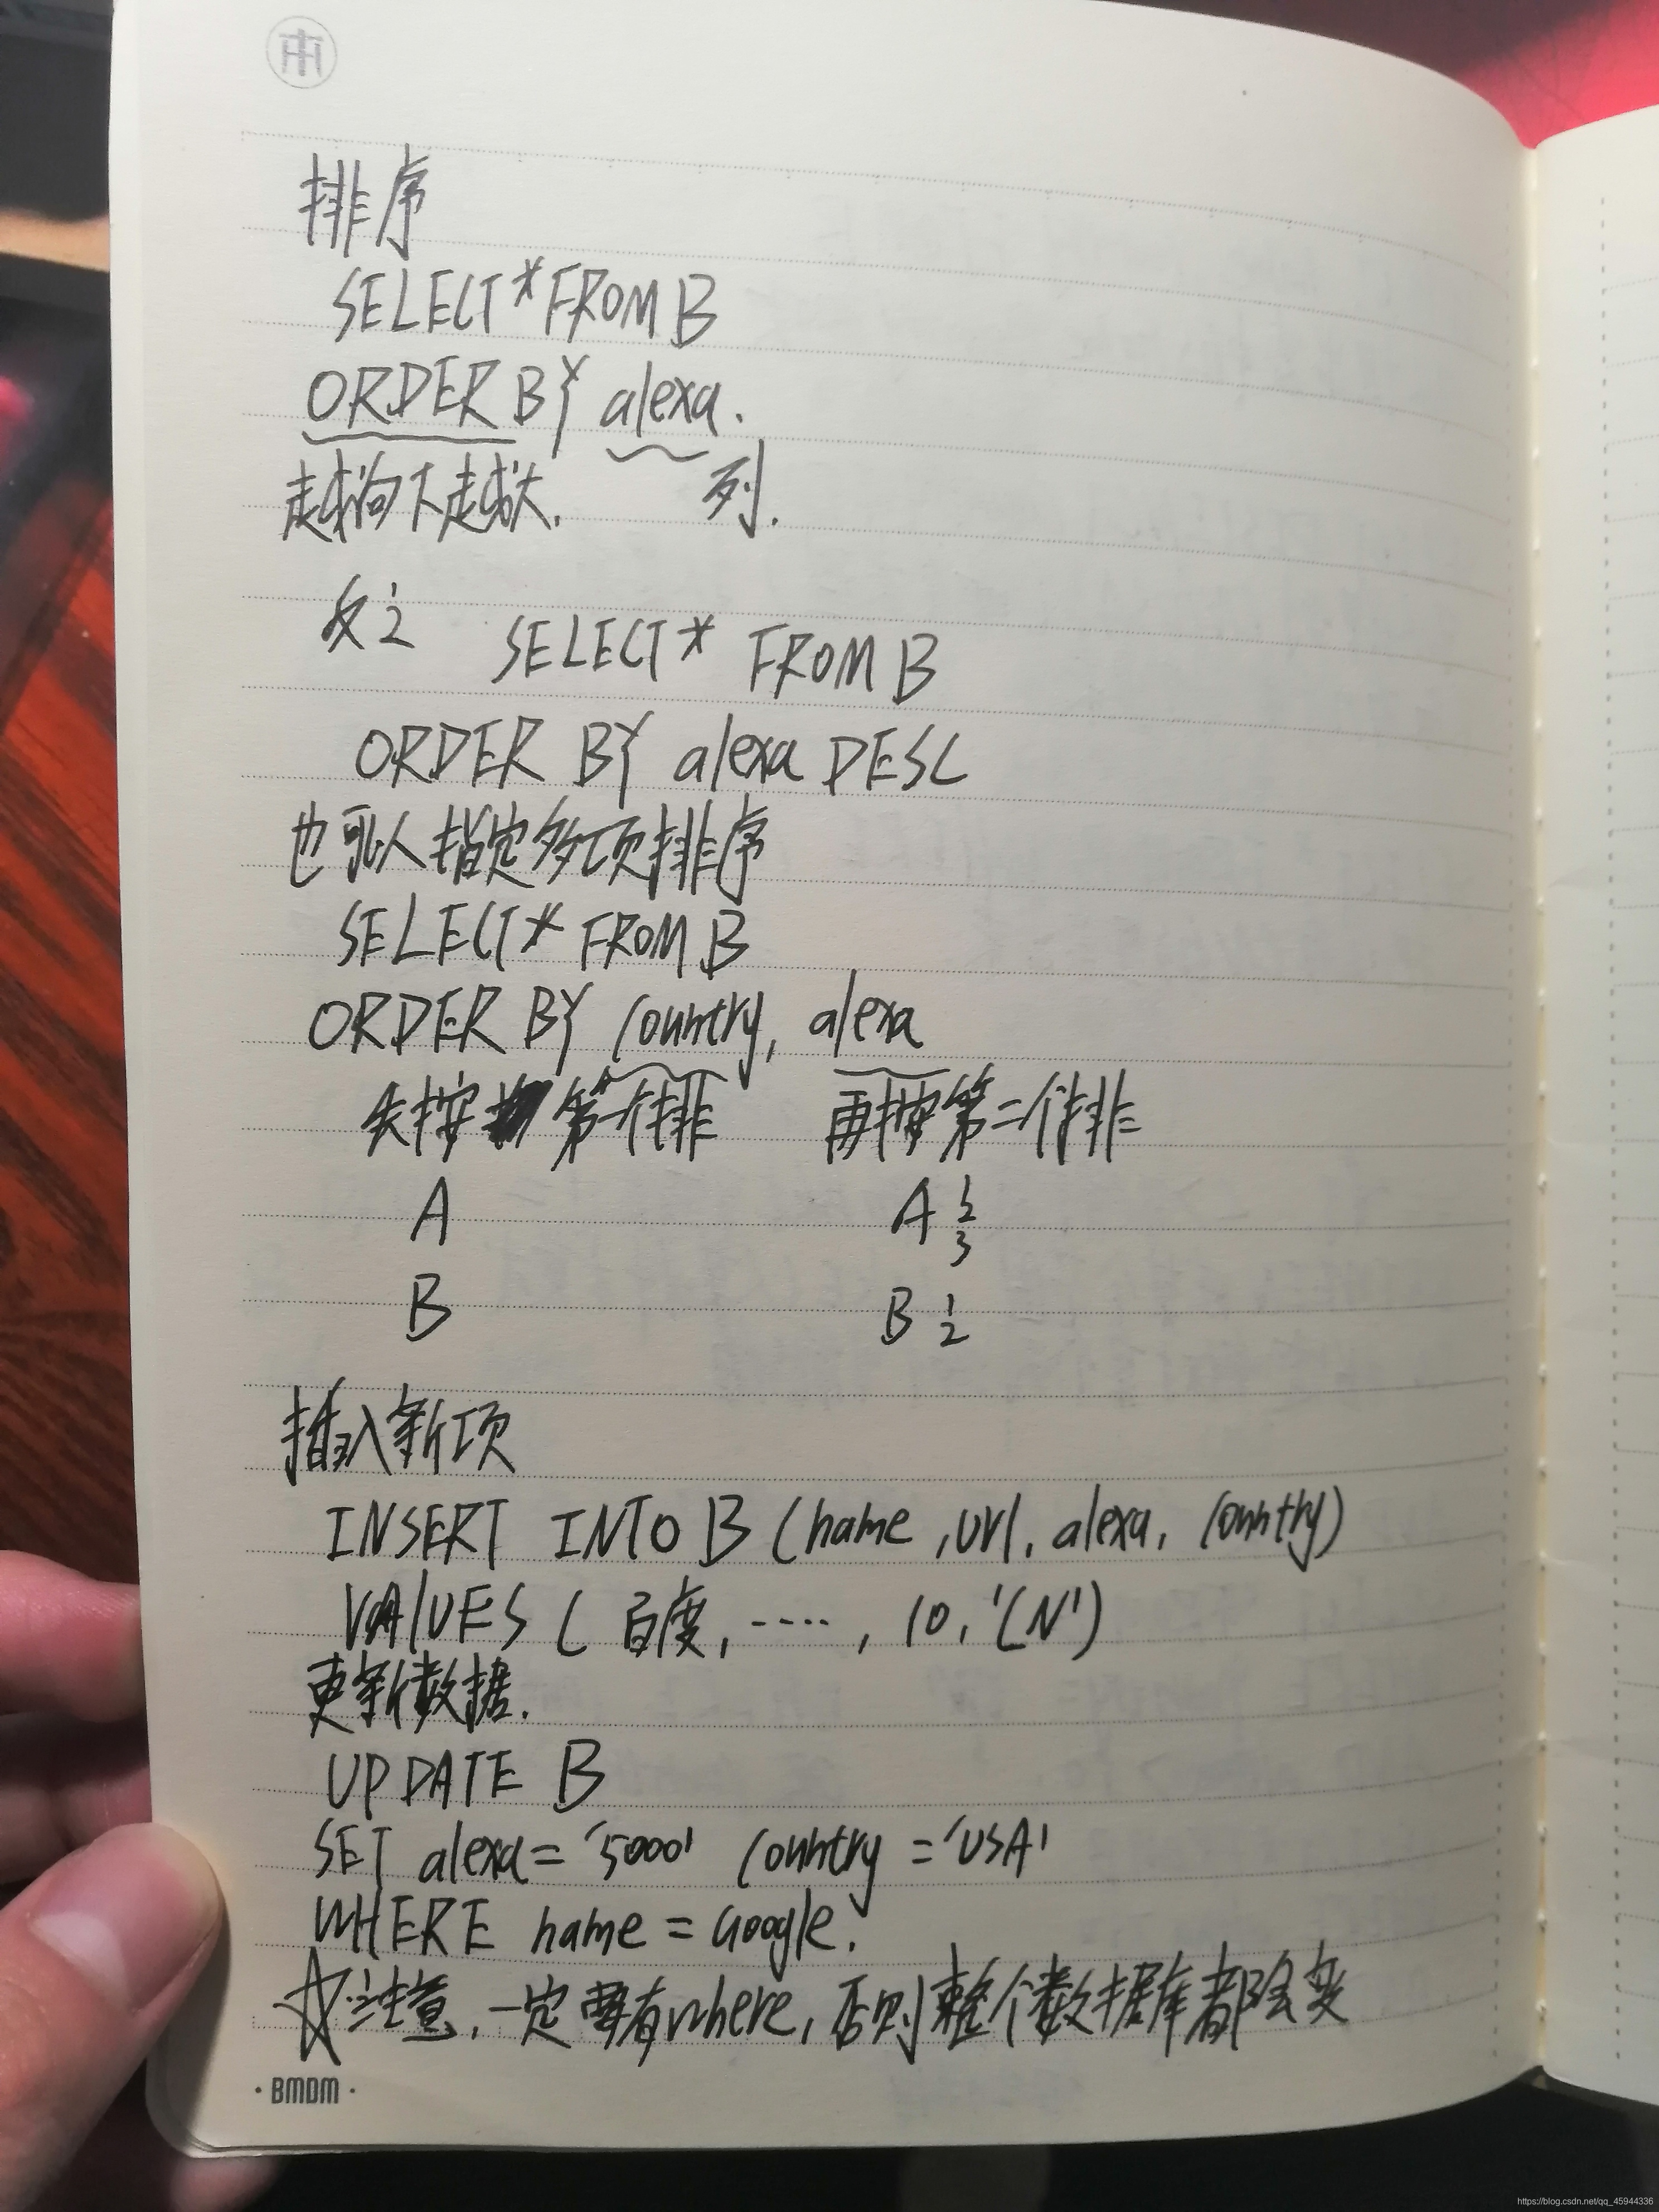 排序
SELECT * FROM B
ORDER BY alexa.
越向下越大. 列.
反之 SELECT * FROM B
ORDER BY alexa DESC
也可以指定多项排序
SELECT * FROM B
ORDER BY country, alexa
先按 第一个排 再按第二个排
A A 1 2 3
B B 1 2
插入新项
INSERT INTO B (name, url, alexa, country)
VALUES ( 百度, ····, 10, 'CN')
更新数据.
UPDATE B
SET alexa = '5000' country = 'USA'
WHERE name = Google.
☆注意, 一定要有where, 否则整个数据库都会变
· BMDM ·
https://blog.csdn.net/qq_45944336